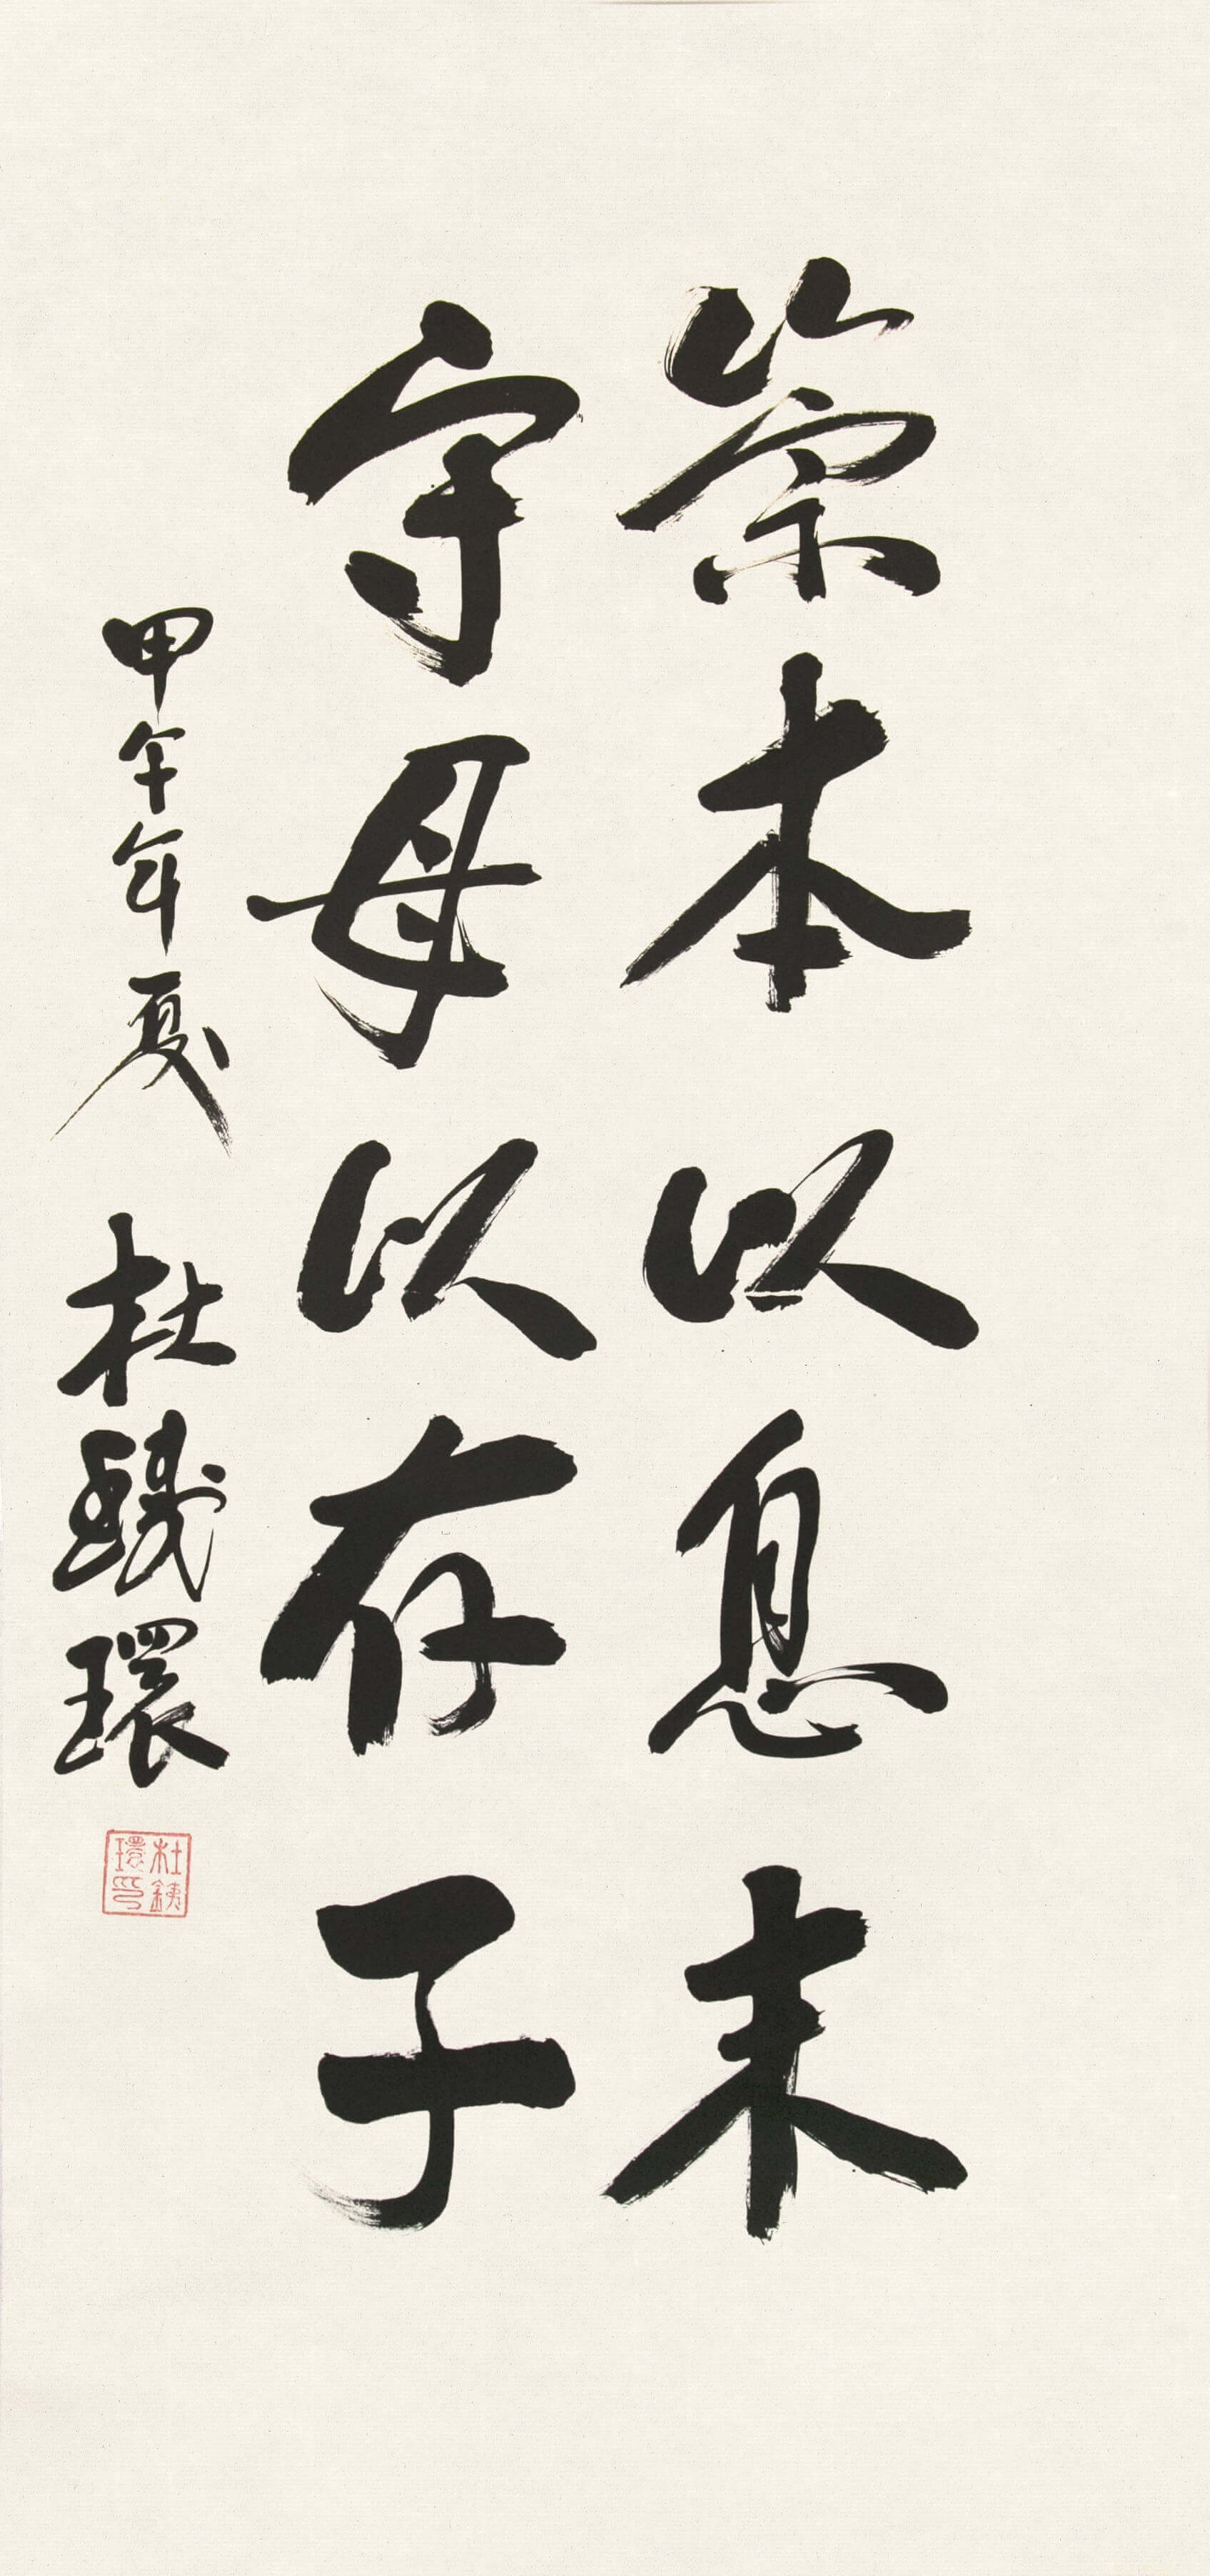 崇本以息末
守母以存子
甲午年夏 杜鐵環
杜鉄環印